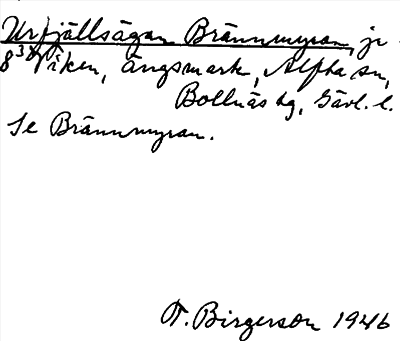 Ur fjällsägan Brännmyran, jr
8³⁸ Viken, ängsmark, Alfta sn,
Bollnäs tg, Gävl. l.
Se Brännmyran.
T. Birgerson 1946